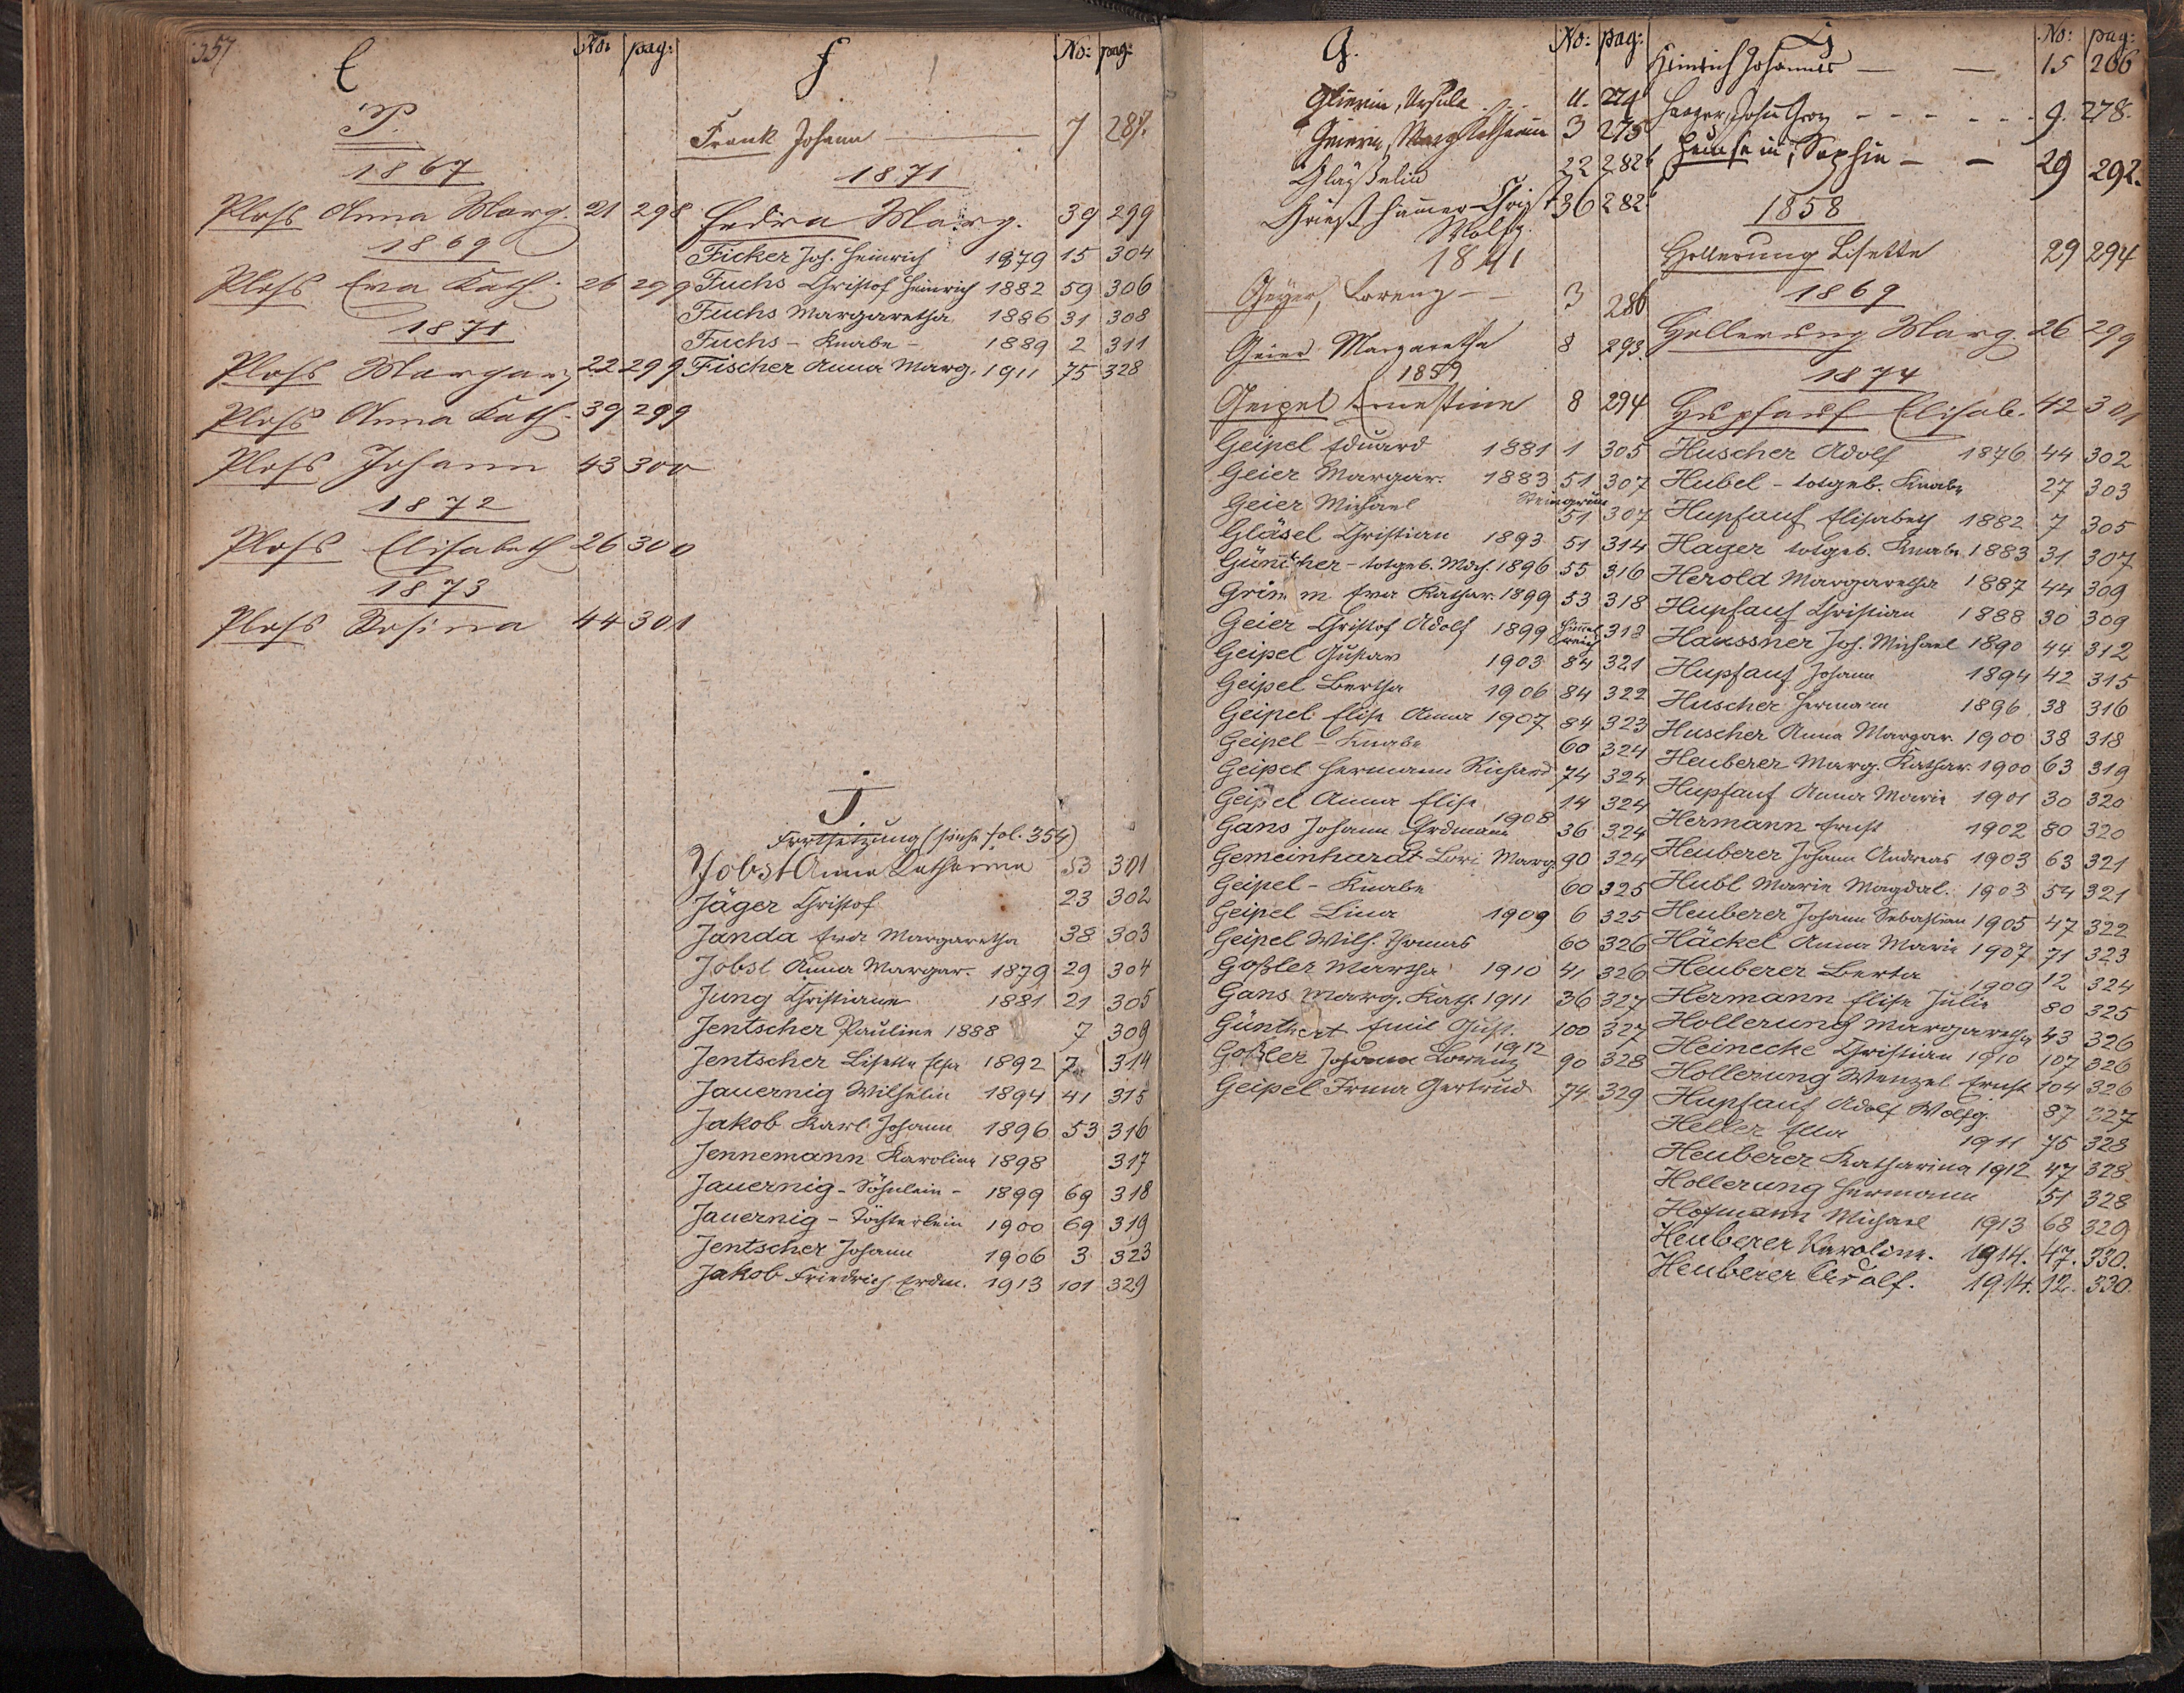 357
E No: pag:
P.
1867
Ploss Anna Marg. 21 298
1869
Ploss Eva Kath. 26 299
1871
Ploss Margar. 22 299
Ploss Anna Kath. 39 299
Ploss Johann 43 300
1872
Ploss Elisabeth 26 300
1873
Ploss Rosina 44 301
F No: pag:
Frank Johann 7 287.
1871
Fedra Marg. 39 299
Ficker Joh. Heinrich 1879 15 304
Fuchs Christof Heinrich 1882 59 306
Fuchs Margaretha 1886 31 308
Fuchs - Knabe - 1889 2 311
Fischer Anna Marg. 1911 75 328
J.
Fortsetzung (siehe fol. 354)
Jobst Anna Katharina 53 301
Jäger Christof 23 302
Janda Eva Margaretha 38 303
Jobst Anna Margar. 1879 29 304
Jung Christiane 1881 21 305
Jentscher Pauline 1888 7 309
Jentscher Lisette Elsa 1892 7 314
Jauernig Wilhelm 1894 41 315
Jakob Karl Johann 1896 53 316
Jennemann Karoline 1898 317
Jauernig - Söhnlein - 1899 69 318
Jauernig - Töchterlein 1900 69 319
Jentscher Johann 1906 3 323
Jakob Friedrich Erdm. 1913 101 329
G. No: pag:
Glierin, Ursula 11. 274
Geierin, Marg Katharin 3 275
Gläßelin 22 282
Grießhamer Christ 36 282
Wolfg.
1841
Geyer, Lorenz 3 286
Geier Margaretha 8 293.
1859
Geipel Ernestine 8 294
Geipel Eduard 1881 1 305
Geier Margar. 1883 51 307
Geier Michael Steingrün 51 307
Gläsel Christian 1893 51 314
Günther - totgeb. Mdch. 1896 55 316
Grimm Eva Kathar. 1899 53 318
Geier Christof Adolf 1899 Himmelreich 318
Geipel Gustav 1903 84 321
Geipel Bertha 1906 84 322
Geipel Elise Anna 1907 84 323
Geipel - Knabe 60 324
Geipel Hermann Richard 74 324
Geipel Anna Elise 14 324
Gans Johann Erdmann 1908 36 324
Gemeinhardt Lori Marg. 90 324
Geipel - Knabe 60 325
Geipel Lina 1909 6 325
Geipel Wilh. Thomas 60 326
Goßler Martha 1910 41 326
Gans Marg. Kath. 1911 36 327
Günthert Emil Gust. 100 327
Goßler Johann Lorenz 1912 90 328
Geipel Irma Gertrud 74 329
No: pag:
Heinrich Johannes 15 266
Haager, Johann Georg 9. 278.
Heußein, Sophie 29 292.
1858
Hollerung Lisette 29 294
1869
Hollerung Marg. 26 299
1874
Hupfauf Elisab. 42 301
Huscher Adolf 1876 44 302
Hubel - totgeb. Knabe 27 303
Hupfauf Elisabeth 1882 7 305
Hager totgeb. Knabe 1883 31 307
Herold Margaretha 1887 44 309
Hupfauf Christian 1888 30 309
Haussner Joh. Michael 1890 44 312
Hupfauf Johann 1894 42 315
Huscher Hermann 1896 38 316
Huscher Anna Margar. 1900 38 318
Heuberer Marg. Kathar. 1900 63 319
Hupfauf Anna Marie 1901 30 320
Hermann Ernst 1902 80 320
Heuberer Johann Andreas 1903 63 321
Hubl Marie Magdal. 1903 54 321
Heuberer Johann Sebastian 1905 47 322
Häckel Anna Marie 1907 71 323
Heuberer Berta 1909 12 324
Hermann Elise Julie 80 325
Hollerung Margaretha 43 326
Heinecke Christian 1910 107 326
Hollerung Wenzel Ernst 104 326
Hupfauf Adolf Wolfg. 87 327
Heller Ella 1911 75 328
Heuberer Katharina 1912 47 328
Hollerung Hermann 51 328
Hofmann Michael 1913 68 329
Heuberer Karoline. 1914. 47. 330.
Heuberer Adolf. 1914. 12. 330.